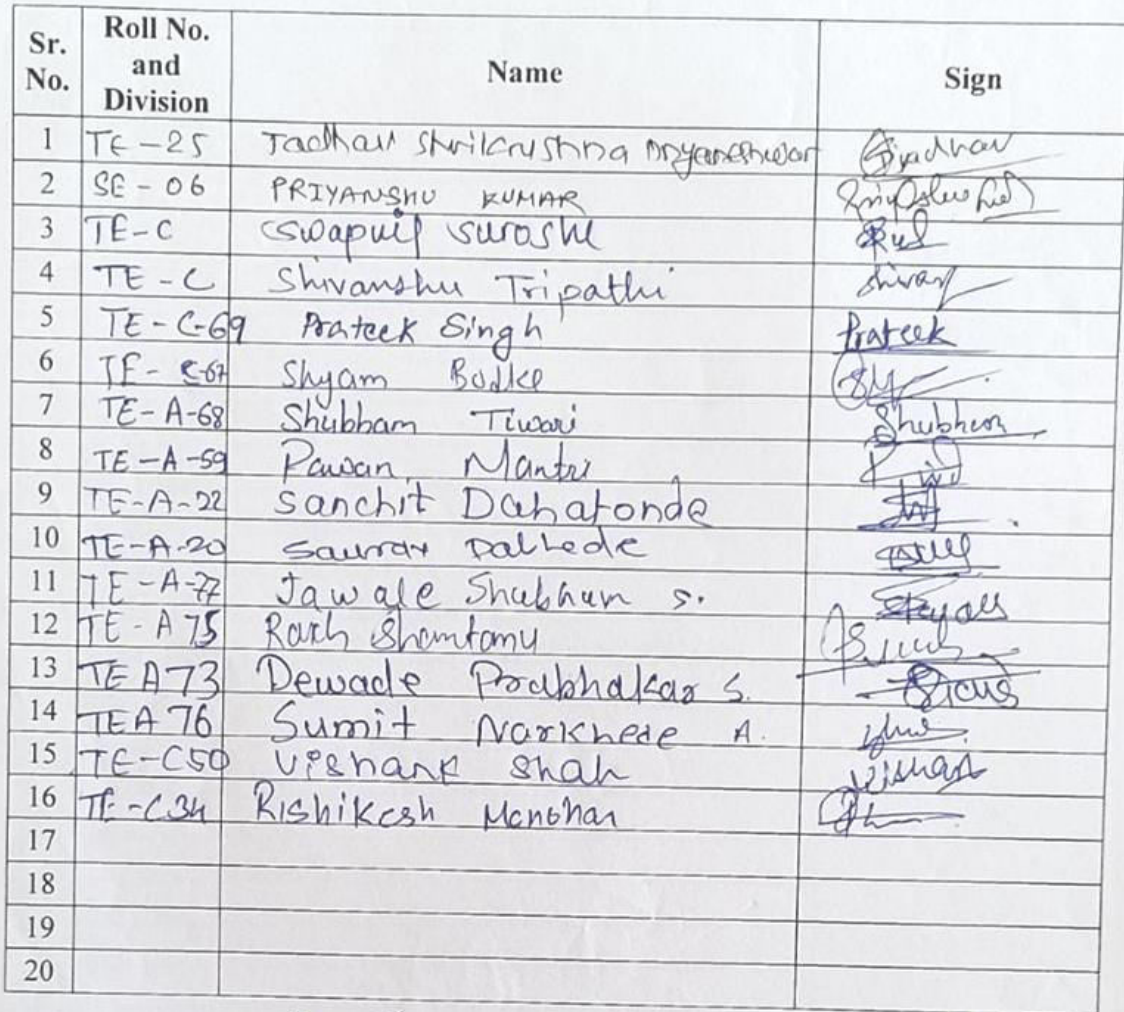 Sr. No. Roll No. and Division Name Sign
1 TE-25 Jadhav Shrikrushna Dnyaneshwar
2 SE-06 PRIYANSHU KUMAR
3 TE-C Swapnil Suroshe
4 TE-C Shivanshu Tripathi Shivan
5 TE-C-69 Prateek Singh Prateek
6 TE-C-67 Shyam Bodke
7 TE-A-68 Shubham Tiwari Shubham
8 TE-A-59 Pawan Mantri
9 TE-A-22 Sanchit Dahatonde
10 TE-A-20 Saurav Dalhede
11 TE-A-77 Jawale Shubham S.
12 TE-A 75
13 TE A 73 Dewade Prabhakar S.
14 TEA 76 Sumit Narkhede A.
15 TE-C50 Vishank Shah
16 TE-C34 Rishikesh Manohar
17
18
19
20